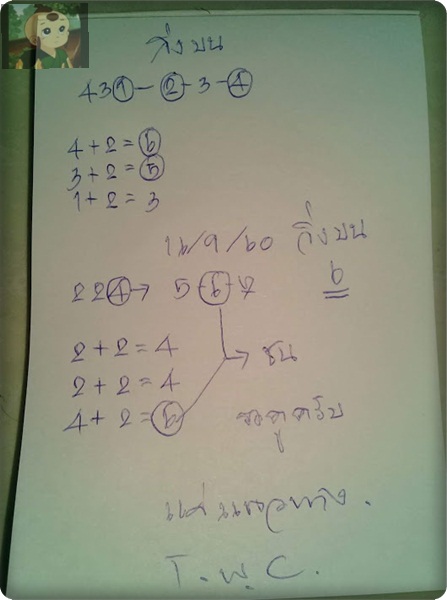 วิ่งบน
431 - 2 - 3 - 4
4 + 2 = 6
3 + 2 = 5
1 + 2 = 3
16/9/60 วิ่งบน
224 → 5 - 6 - 7 6
2 + 2 = 4
→ ชน
2 + 2 = 4
4 + 2 = 6
แค่แนวทาง.
T.W.C.